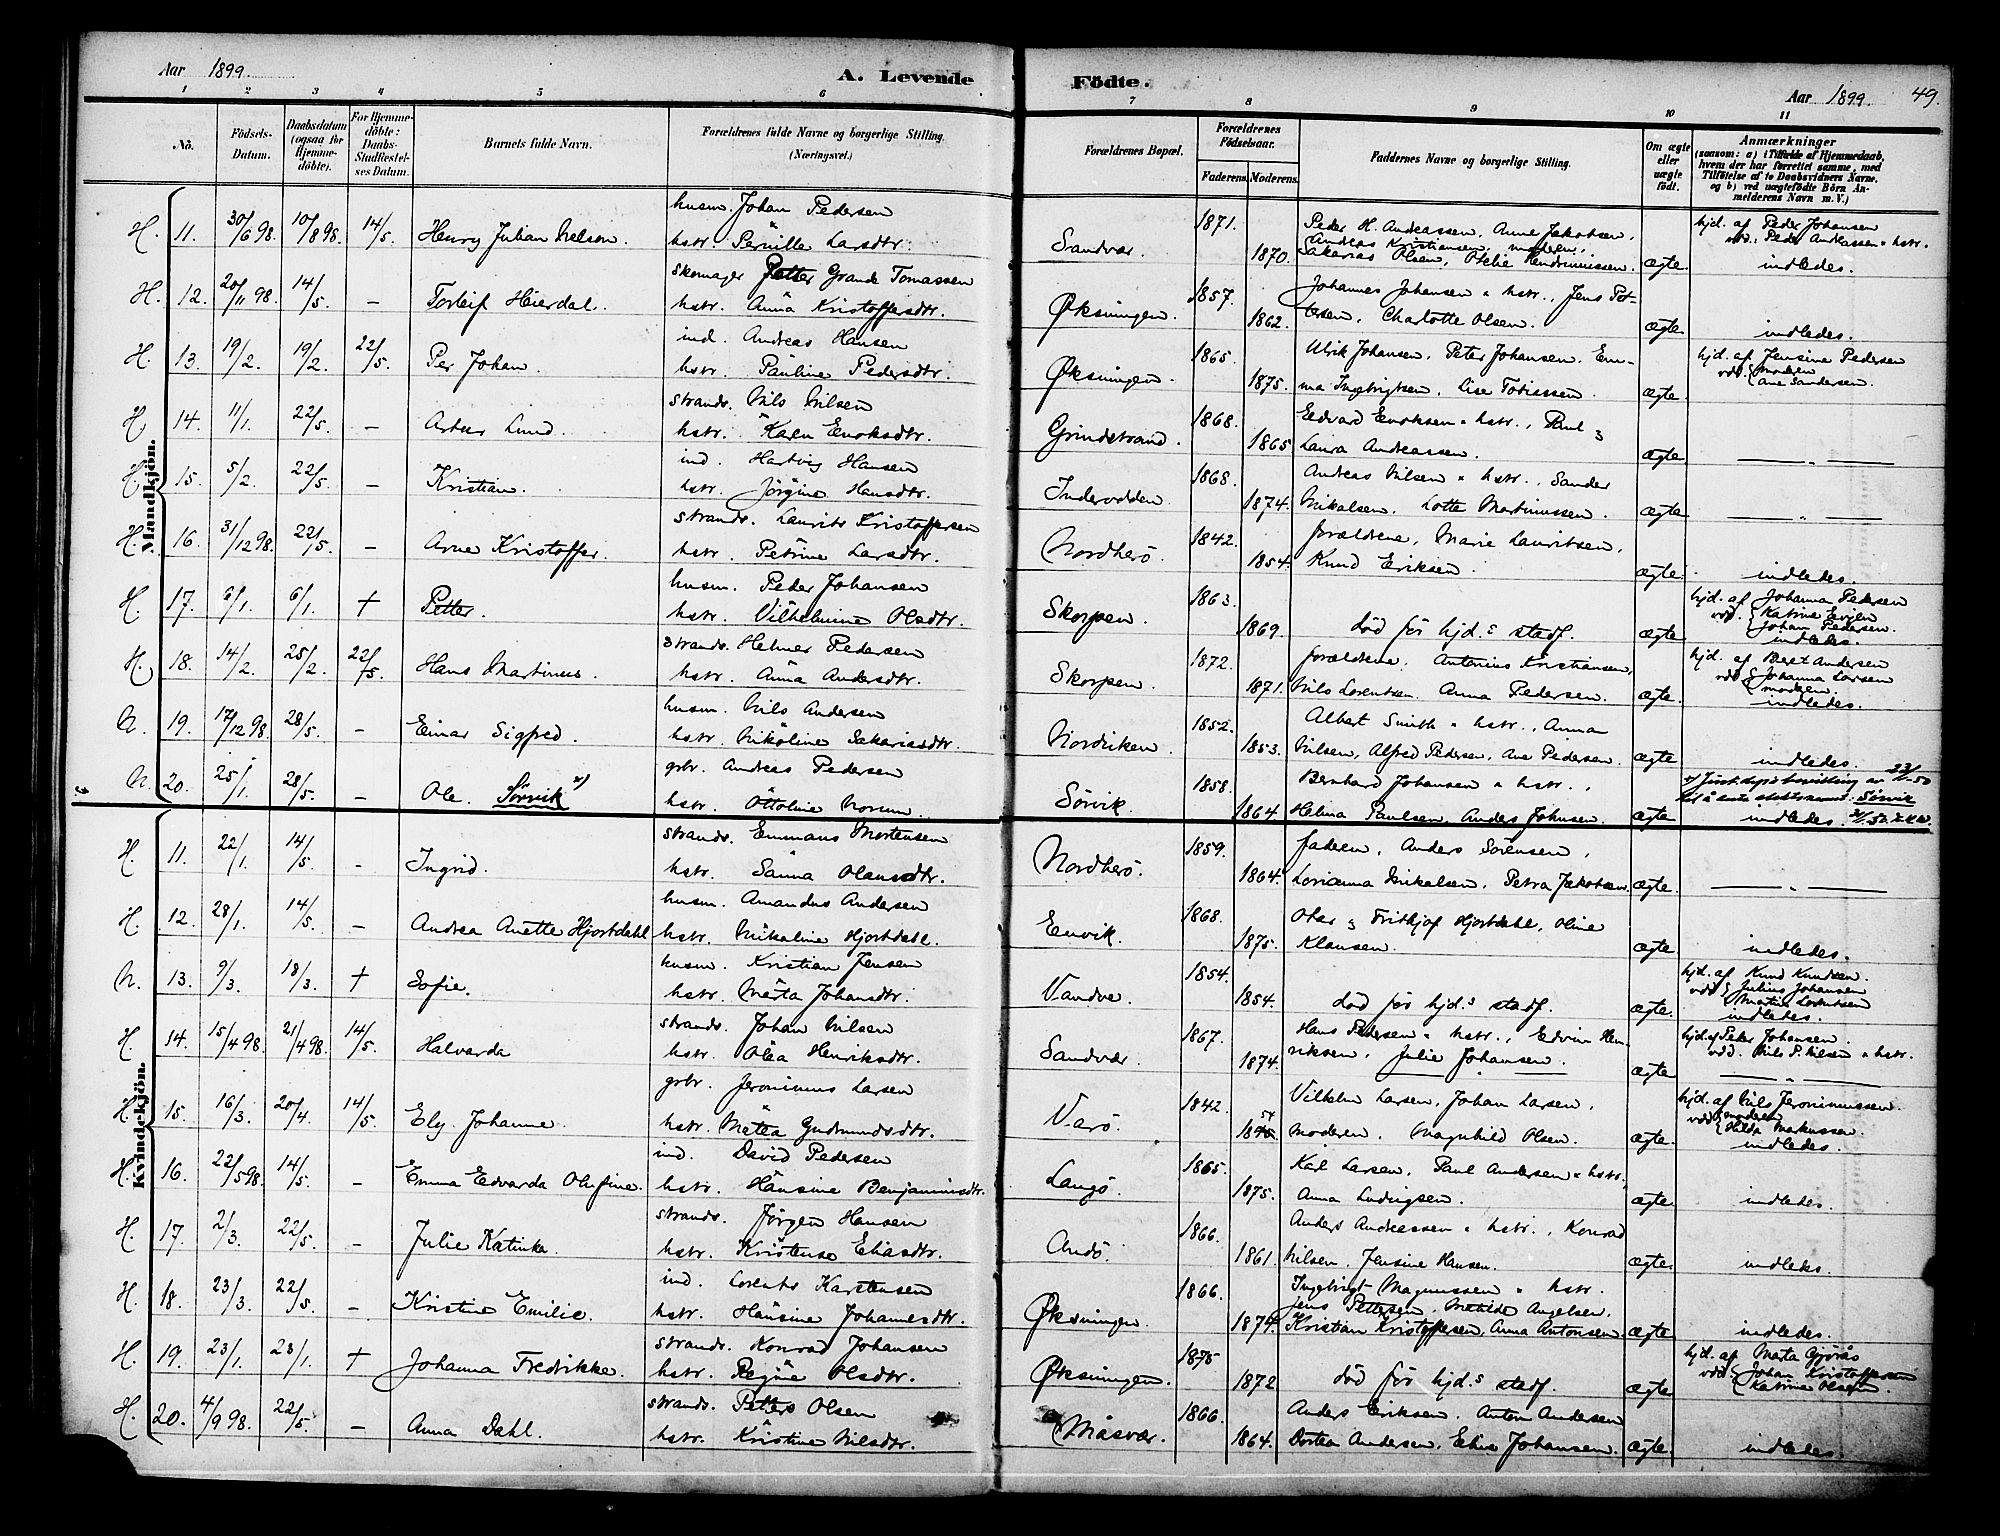 Aar 1899.
A. Levende Födte.
Aar 1899. 49.
1 2 3 4 5 6 7 8 9 10 11
No. Födsels-Datum. Daabsdatum (ogsaa for Hjemmedöbte). For Hjemmedöbte: Daabs-Stadfæstelses Datum. Barnets fulde Navn. Forældrenes fulde Navne og borgerlige Stilling. (Næringsvei.) Forældrenes Bopæl. Forældrenes Födselsaar. Faderens. Moderens. Faddernes Navne og borgerlige Stilling. Om ægte eller uægte födt. Anmærkninger (saasom: a) i Tilfælde af Hjemmedaab, hvem der har forrettet samme, med Tilföielse af to Daabsvidners Navne, og b) ved uægtefödte Börn Anmelderens Navn m. V.)
Mandkjön.
H. 11. 30/6 98. 10/8 98. 14/5. Henry Julian Nelson. husm. Johan Pedersen hstr. Pernille Larsdtr. Sandvær. 1871. 1870. Peder H. Andreassen, Anne Jakobsen, Andreas Kristiansen, moderen, Sakarias Olsen, Otelie Hendrimissen. ægte hjd. af Peder Johansen vdd.: Peder Andreassen " hstr. indledes.
H. 12. 20/11 98. 14/5. – Torleif Heierdal. skomager Petter Grande Tomassen hstr. Anna Kristoffersdtr. Øksningen. 1857. 1862. Johannes Johansen " hstr., Jens Petersen, Charlotte Olsen. ægte indledes.
H. 13. 19/2. 19/2. 22/5. Per Johan. ind. Andreas Hansen hstr. Pauline Pedersdtr. Øksningen. 1865. 1875. Ulrik Johansen, Peter Johansen, Emma Ingebrigtsen, Lise Tobiassen. ægte. hjd. af Jensine Pedersen vdd. moderen Ane Sandersen.
H 14. 11/1. 22/5. – Artur Lund. strands. Nils Nilsen hstr. Karen Enoksdtr. Grindstrand. 1868. 1865 Edvard Enoksen " hstr., Paul & Laura Andreassen. ægte — " —
H. 15. 5/2. 22/5. – Kristian. ind. Hartvig Hansen hstr. Jörgine Hansdtr. Indervolden. 1868. 1874. Andreas Nilsen " hstr., Sander Mikalsen, Lotte Martinussen. ægte — " —
H. 16. 31/12 98. 22/5. – Arne Kristoffer. strands. Laurits Kristoffersen hstr. Petrine Larsdtr. Nordherö. 1842. 1854. forældrene, Marie Lauritsen, Knud Eriksen. ægte. indledes.
H. 17. 6/1. 6/1. † Petter. husm. Peder Johansen hstr. Vilhelmine Olsdtr. Skorpen. 1863. 1869. död för hjd.s stadf. ægte hjd. af Johanna Pedersen vdd. Katrine Johan Pedersen. indledes.
H. 18. 14/2. 25/2. 22/5. Hans Martinus. strands. Helmer Pedersen hstr. Anna Andersdtr. Skorpen. 1872. 1871. forældrene, Antonius Kristiansen, Nils Lorentsen, Anna Pedersen. ægte hjd. af Beret Andersen vdd. Johanna Larsen moderen. indledes.
N. 19. 17/12 98. 28/5. – Einar Sigfred. husm. Nils Andersen hstr. Nikoline Sakariasdtr. Nordviken. 1852. 1853. Albert Smith " hstr., Anna Nilsen, Alfred Pedersen, Ane Pedersen. ægte indledes.
N. 20. 25/1. 28/5. – Ole. Sörvik x) gbr. Andreas Pedersen hstr. Ottoline Norum. Sörvik. 1858. 1864 Bernhard Johansen " hstr., Helma Paulsen, Anders Johnsen. ægte x) Just.dep. bevilling av 50 for å anta slektsnavnet: Sörvik indledes.
Kvindekjön.
H. 11. 22/1. 14/5. – Ingrid. strands. Emmans Mortensen hstr. Sanna Olausdtr. Nordherö. 1859. 1864. faderen, Anders Sörensen, Lorianna Mikalsen, Petra Jakobsen. ægte. — " —
H. 12. 28/1. 14/5. – Andrea Anette Hjortdahl husm. Amandus Andersen hstr. Mikaline Hjortdahl. Envik. 1868. 1875. Otar & Fritkjof Hjortdahl, Oline Klausen. ægte indledes.
N. 13. 9/3. 18/3. † Sofie. husm. Kristian Jensen hstr. Marta Johansdtr. Vandve. 1854. 1854. död för hjd.s stadf. ægte. hjd. af Knud Knudsen. vdd. Julius Johansen Martin Lorentsen indledes.
H 14. 15/4 98. 21/4 98. 14/5. Halvarda strands. Johan Nilsen hstr. Olea Henriksdtr. Sandvær. 1867. 1874. Hans Pedersen " hstr., Edvin Henriksen, Julie Johansen. ægte hjd. af Peter Johansen. vdd. Nils P. Nilsen " hstr. — " —
H 15. 16/3. 20/4. 14/5. Ely Johanne. gbr. Jeronimus Larsen hstr. Metea Gudmundsdtr. Varö. 1842. 54 Vilhelm Larsen, Johan Larsen, moderen, Magnhild Olsen. ægte. hjd. af Nils Jeronimussen. vdd. moderen Hilda Markussen. indledes.
H. 16. 22/5 98. 14/5. – Emma Edvarda Olufine. ind. David Pedersen hstr. Hansine Benjaminsdtr. Langö. 1865. 1875. Karl Larsen, Paul Andersen " hstr., Anna Ludvigsen. ægte. indledes.
H. 17. 2/3. 22/5. – Julie Katinka. strands. Jörgen Hansen hstr. Kristense Eliasdtr. Andö. 1866. 1861. Anders Andreassen " hstr., Konrad Nilsen, Jensine Hansen. ægte. indledes.
H. 18. 23/3. 22/5. – Kristine Emilie. ind. Lorents Karstensen hstr. Hansine Johannesdtr. Øksningen. 1866. 1874. Ingebrigt Magnussen " hstr. Jens Pettersen, Matilde Angelsen, Kristian Kristoffersen, Anna Antonsen. ægte indledes.
H. 19. 23/1. 23/1. † Johanna Fredrikke. strands. Konrad Johansen hstr. Regine Olsdtr. Øksningen. 1875 1872 död för hjd.s stadf. ægte hjd. af Marta Gjörås vdd. Johan Kristoffersen Katrine Olsen.
H. 20. 4/9 98. 22/5. – Anna Dahl. strands. Petter Olsen hstr. Kristine Nilsdtr. Måsvær. 1866. 1864. Anders Eriksen, Anton Andersen Dortea Andersen, Eline Johansen. ægte. indledes.